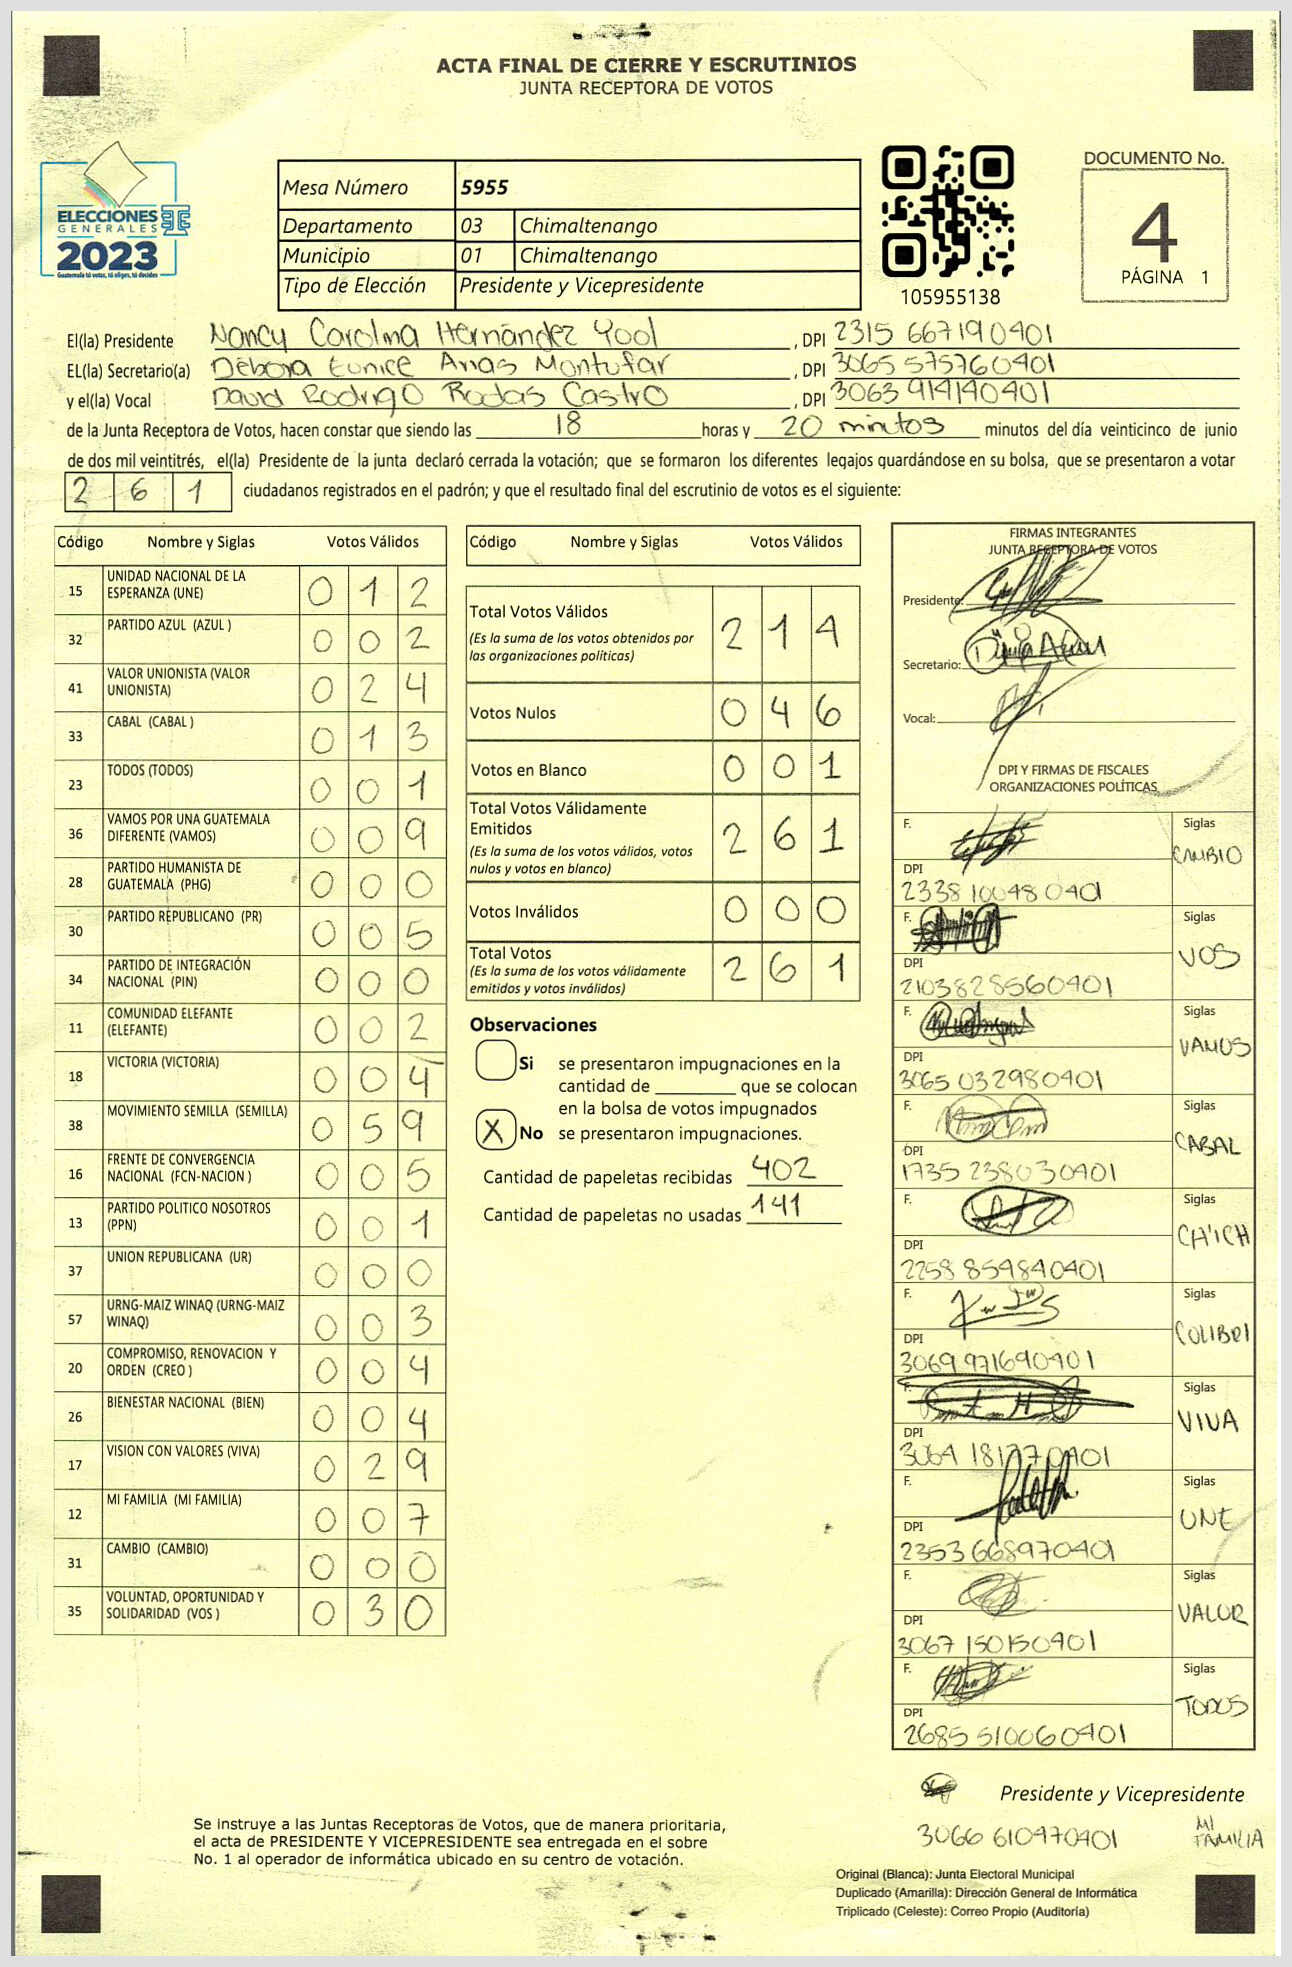 ACTA FINAL DE CIERRE Y ESCRUTINIOS
JUNTA RECEPTORA DE VOTOS
ELECCIONES
GENERALES
2023
Guatemala tú votas, tú eliges, tú decides
Mesa Número 5955
Departamento 03 Chimaltenango
Municipio 01 Chimaltenango
Tipo de Elección Presidente y Vicepresidente
105955138
DOCUMENTO No.
4
PÁGINA 1
El(la) Presidente Nancy Carolina Hernández Yool, DPI 2315 667190401
EL(la) Secretario(a) Débora Eunice Arias Montufar, DPI 3065 575760401
y el(la) Vocal David Rodrigo Rodas Castro, DPI 3063 914140401
de la Junta Receptora de Votos, hacen constar que siendo las 18 horas y 20 minutos minutos del día veinticinco de junio
de dos mil veintitrés, el(la) Presidente de la junta declaró cerrada la votación; que se formaron los diferentes legajos guardándose en su bolsa, que se presentaron a votar
261 ciudadanos registrados en el padrón; y que el resultado final del escrutinio de votos es el siguiente:
Código Nombre y Siglas Votos Válidos
15 UNIDAD NACIONAL DE LA ESPERANZA (UNE) 0 1 2
32 PARTIDO AZUL (AZUL ) 0 0 2
41 VALOR UNIONISTA (VALOR UNIONISTA) 0 2 4
33 CABAL (CABAL ) 0 1 3
23 TODOS (TODOS) 0 0 1
36 VAMOS POR UNA GUATEMALA DIFERENTE (VAMOS) 0 0 9
28 PARTIDO HUMANISTA DE GUATEMALA (PHG) 0 0 0
30 PARTIDO REPUBLICANO (PR) 0 0 5
34 PARTIDO DE INTEGRACIÓN NACIONAL (PIN) 0 0 0
11 COMUNIDAD ELEFANTE (ELEFANTE) 0 0 2
18 VICTORIA (VICTORIA) 0 0 4
38 MOVIMIENTO SEMILLA (SEMILLA) 0 5 9
16 FRENTE DE CONVERGENCIA NACIONAL (FCN-NACION ) 0 0 5
13 PARTIDO POLITICO NOSOTROS (PPN) 0 0 1
37 UNION REPUBLICANA (UR) 0 0 0
57 URNG-MAIZ WINAQ (URNG-MAIZ WINAQ) 0 0 3
20 COMPROMISO, RENOVACION Y ORDEN (CREO ) 0 0 4
26 BIENESTAR NACIONAL (BIEN) 0 0 4
17 VISION CON VALORES (VIVA) 0 2 9
12 MI FAMILIA (MI FAMILIA) 0 0 7
31 CAMBIO (CAMBIO) 0 0 0
35 VOLUNTAD, OPORTUNIDAD Y SOLIDARIDAD (VOS ) 0 3 0
Código Nombre y Siglas Votos Válidos
Total Votos Válidos 2 1 4
(Es la suma de los votos obtenidos por
las organizaciones políticas)
Votos Nulos 0 4 6
Votos en Blanco 0 0 1
Total Votos Válidamente
Emitidos 2 6 1
(Es la suma de los votos válidos, votos
nulos y votos en blanco)
Votos Inválidos 0 0 0
Total Votos 2 6 1
(Es la suma de los votos válidamente
emitidos y votos inválidos)
Observaciones
Si se presentaron impugnaciones en la
cantidad de ________ que se colocan
en la bolsa de votos impugnados
X No se presentaron impugnaciones.
Cantidad de papeletas recibidas 402
Cantidad de papeletas no usadas 141
FIRMAS INTEGRANTES
JUNTA RECEPTORA DE VOTOS
Presidente:
Secretario:
Vocal:
DPI Y FIRMAS DE FISCALES
ORGANIZACIONES POLÍTICAS
F. Siglas
CAMBIO
DPI
2338 10048 0401
F. Siglas
VOS
DPI
2103828560401
F. Siglas
VAMOS
DPI
3065 032980401
F. Siglas
CABAL
DPI
1735 238030401
F. Siglas
CA'ICH
DPI
2258 859840401
F. Siglas
COLIBRI
DPI
3069 971690401
F. Siglas
VIVA
DPI
3064 181770401
F. Siglas
UNE
DPI
2353 668970401
F. Siglas
VALOR
DPI
3067 150150901
F. Siglas
TODOS
DPI
2685 510060401
Presidente y Vicepresidente
3066 610470401 MI FAMILIA
Se instruye a las Juntas Receptoras de Votos, que de manera prioritaria,
el acta de PRESIDENTE Y VICEPRESIDENTE sea entregada en el sobre
No. 1 al operador de informática ubicado en su centro de votación.
Original (Blanca): Junta Electoral Municipal
Duplicado (Amarilla): Dirección General de Informática
Triplicado (Celeste): Correo Propio (Auditoría)